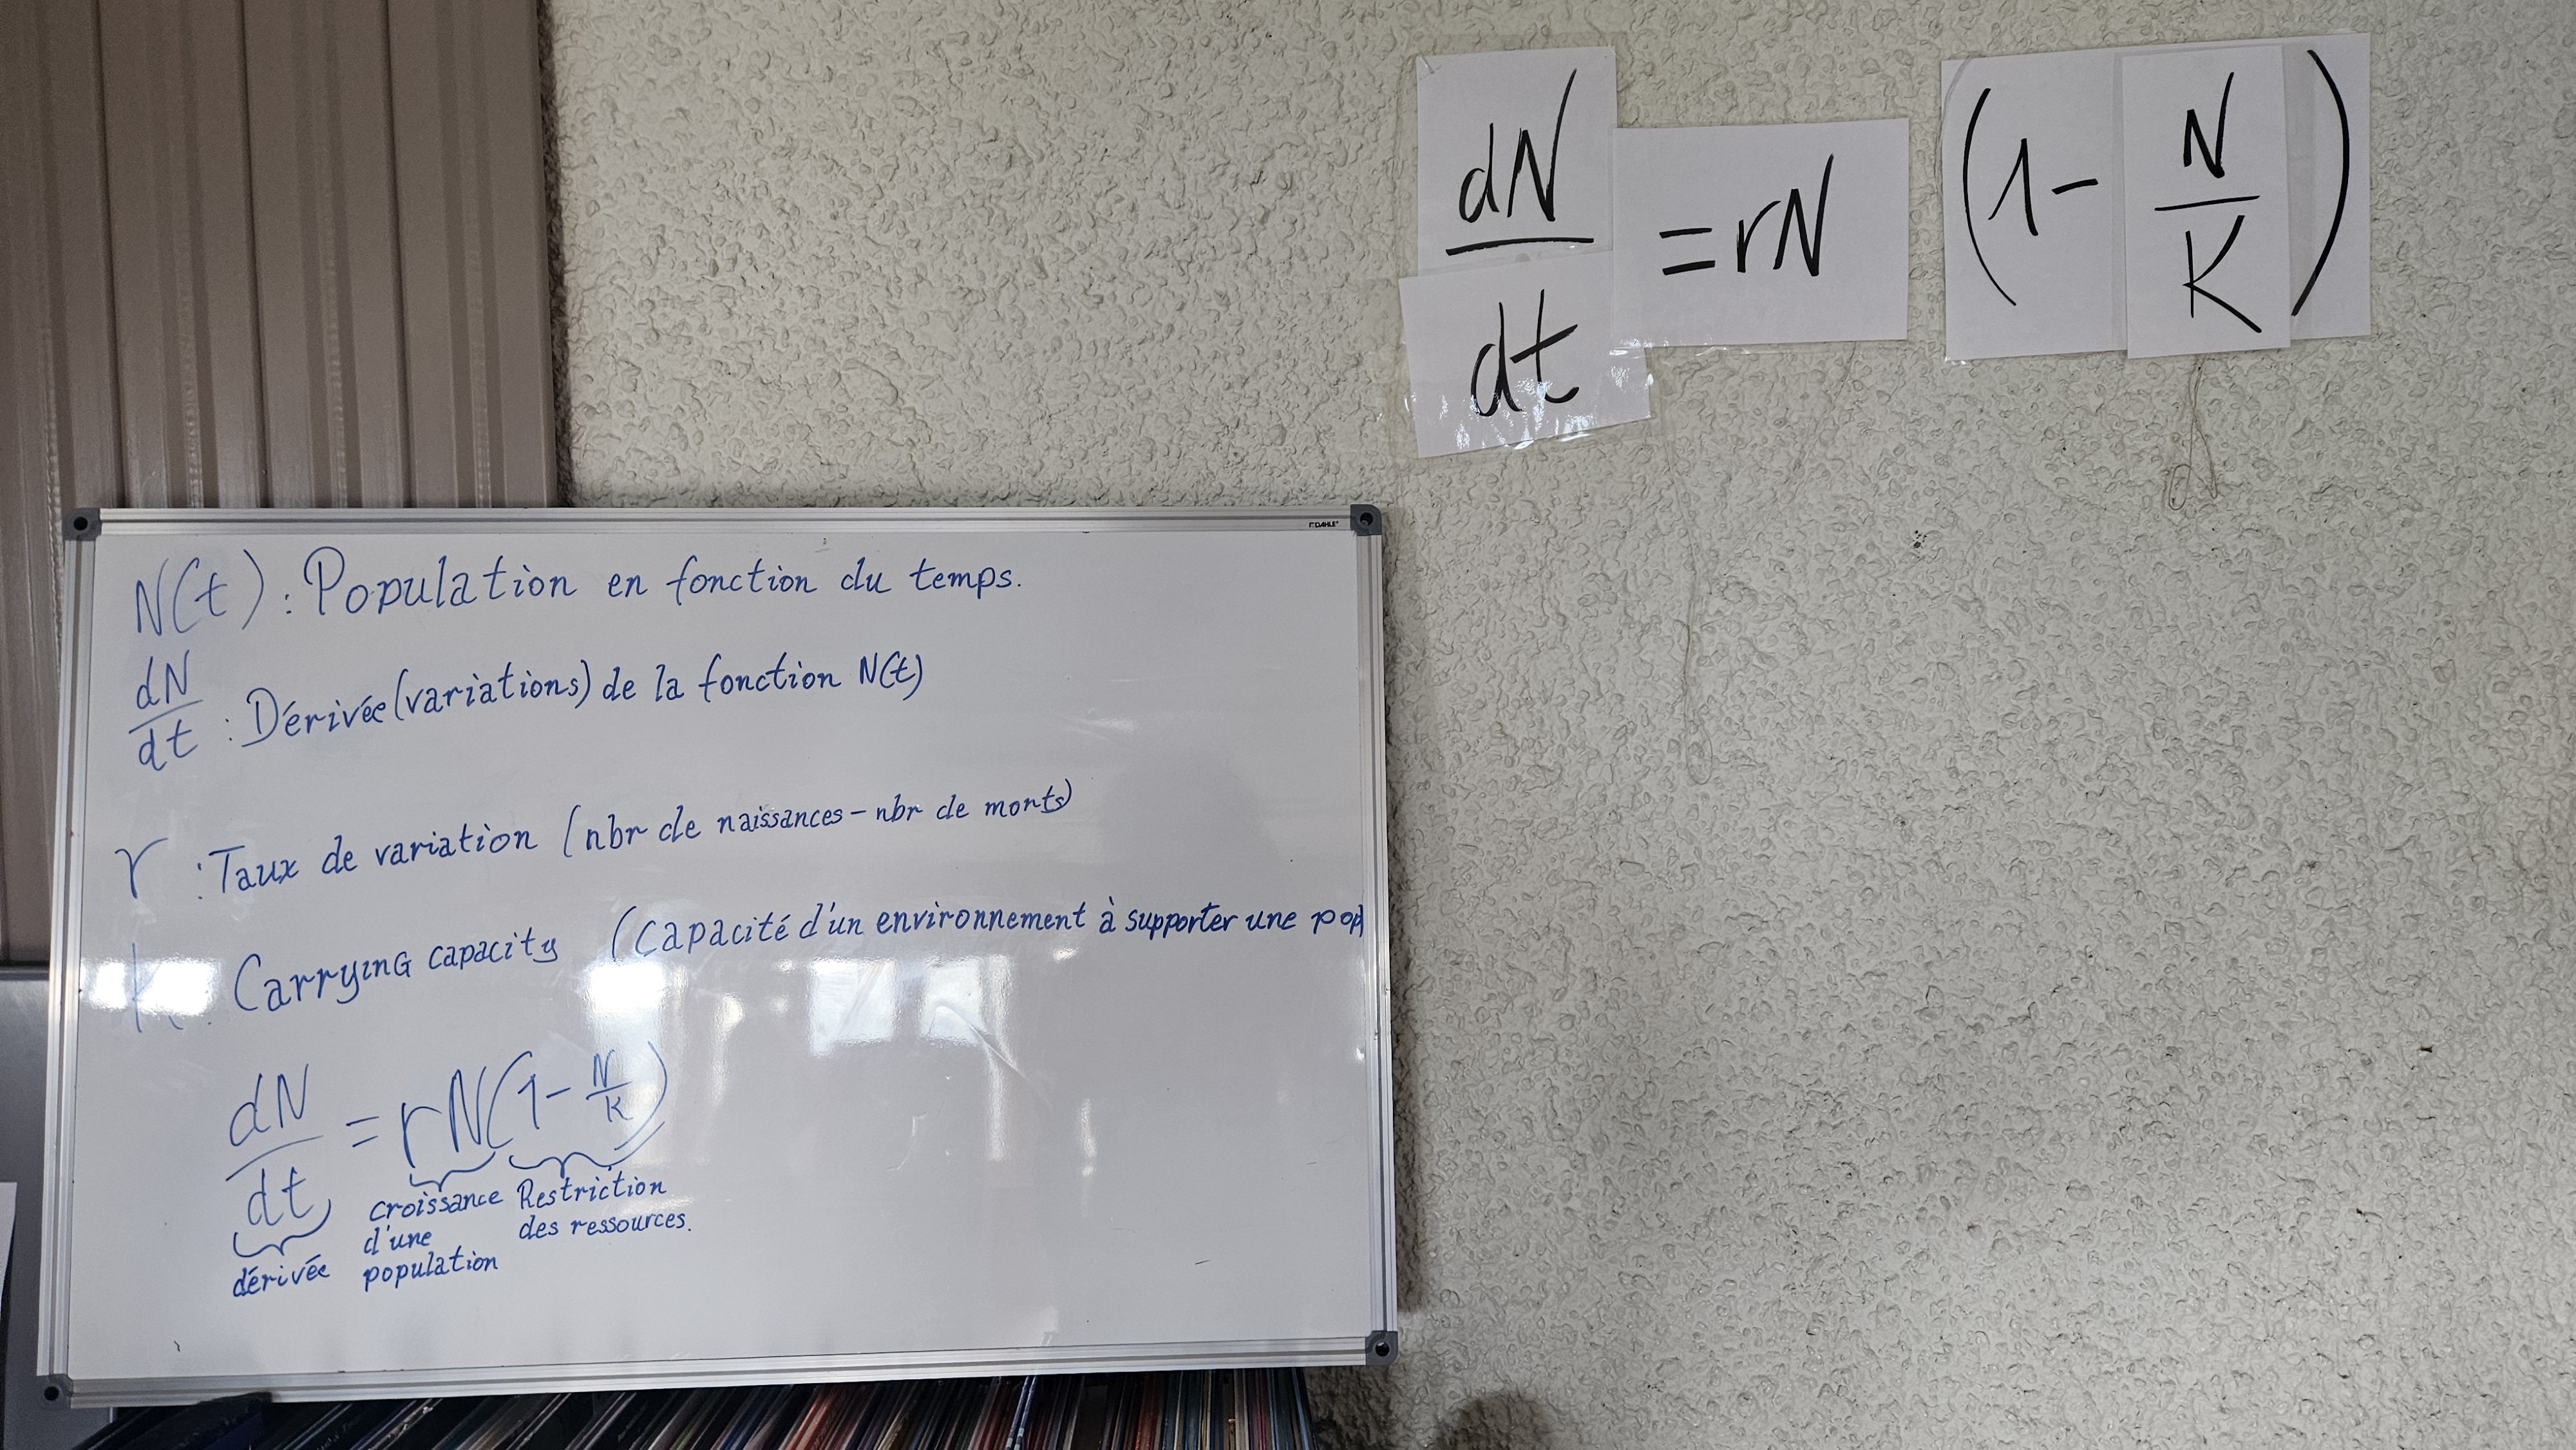 dN/dt = rN (1 - N/K)
DAHLE
N(t) : Population en fonction du temps.
dN/dt : Dérivée (variations) de la fonction N(t)
r : Taux de variation (nbr de naissances - nbr de morts)
K : Carrying capacity (capacité d'un environnement à supporter une pop)
dN/dt = rN(1 - N/K)
dérivée
croissance d'une population
Restriction des ressources.